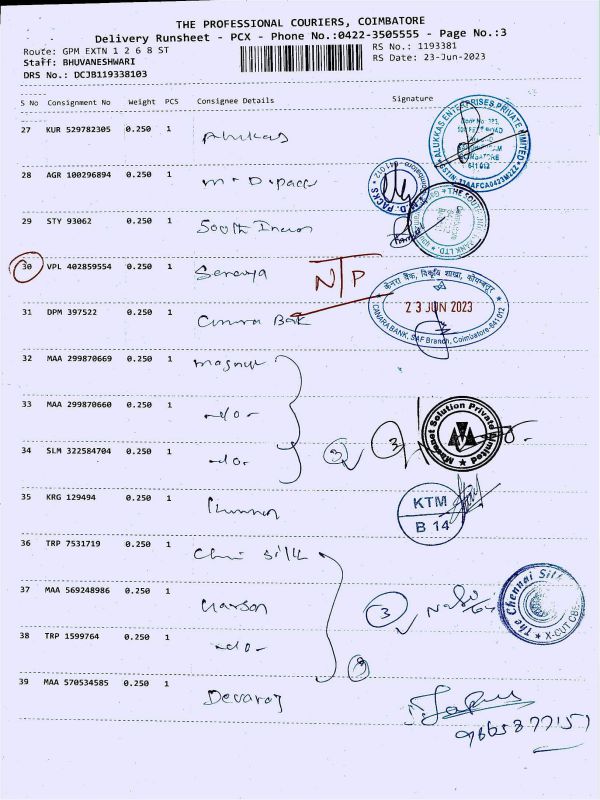 THE PROFESSIONAL COURIERS, COIMBATORE
Delivery Runsheet - PCX - Phone No.:0422-3505555 - Page No.:3
Route: GPM EXTN 1 2 6 8 ST
RS No.: 1193381
Staff: BHUVANESHWARI
RS Date: 23-Jun-2023
DRS No.: DCJB119338103
S No Consignment No Weight PCS Consignee Details Signature
27 KUR 529782305 0.250 1 Alukas
ALUKKAS ENTERPRISES PRIVATE LIMITED
641 012
28 AGR 100296894 0.250 1 M D pack
D. PACKS
29 STY 93062 0.250 1 South Indian
30 VPL 402859554 0.250 1 NTP
31 DPM 397522 0.250 1 Canara Bak
केनरा बैंक, विकृषि शाखा, कोयम्बत्तूर
23 JUN 2023
CANARA BANK, SAF Branch, Coimbatore-641012
32 MAA 299870669 0.250 1 magnet
33 MAA 299870660 0.250 1 -do-
34 SLM 322584704 0.250 1 -do- 3 3
Solution Private Limited
35 KRG 129494 0.250 1
KTM
B 14
36 TRP 7531719 0.250 1 silk
37 MAA 569248986 0.250 1 3
The Chennai Silks
X-CUT CBE
38 TRP 1599764 0.250 1 -do-
39 MAA 570534585 0.250 1 Devaraj
9865877157